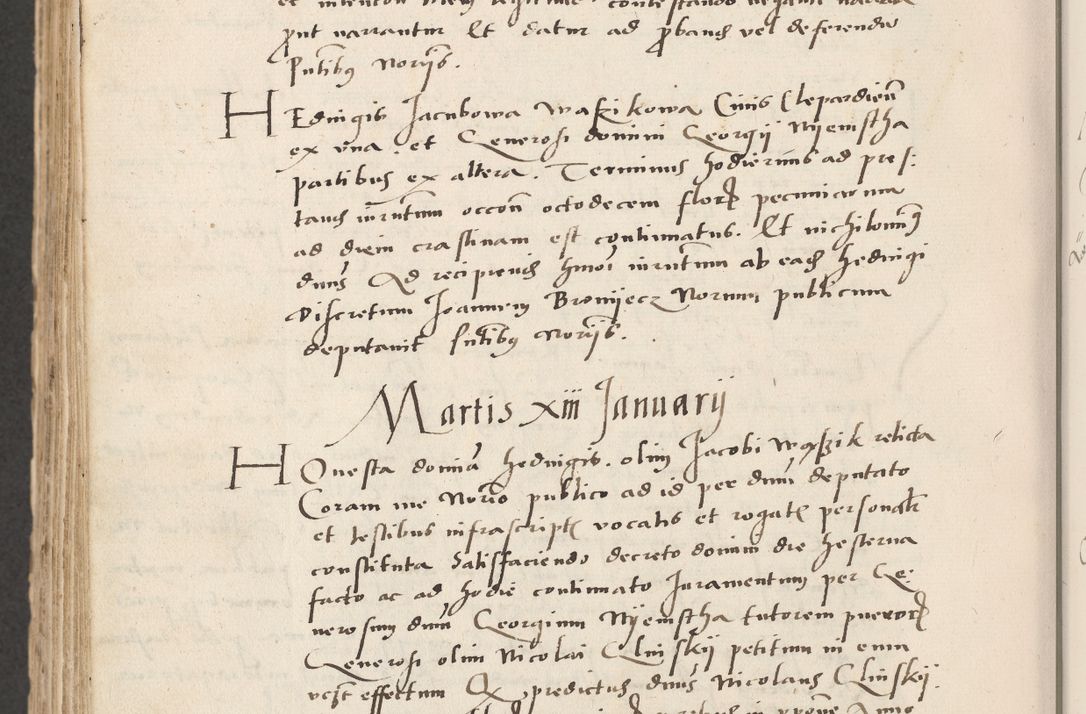 et intencon
ꝓut narrantur Et datur ad ꝓband vel deferendu
Pntibus Norijs.
HEdvigis Jacubowa Waskikowa Civis Clepardien
ex vna. et Generosi domini Georgij Nyemstha
partibus ex altera. Terminus hodiernus ad pres:
tand iurntum occon octodecem flor pecuniarum
ad diem crastinam est continuatus. Et nichilomin9
dnus Ad recipiend hmoi iurntum ab eadem hedvigi
Discretum Joannem Bronyecz Norum publicum
deputavit pntibus Norijs.
Martis xiii Januarij
HOnesta domina hedvigis. olim Jacobi Waskik relicta
Coram me Norio publico ad id per dnum deputato
et testibus infrascript vocatis et rogat personalr
constituta Satisfaciendo decreto domini die hesterna
facto ac ad hodie continuato Juramentum per Ge:
nerosum dnum Georgium Nyemstha tutorem pueror
Generosi olim Nicolai Glinskij petitum in eum
vest effectum Qz predictus dnus Nicolaus Glinskij.
Anno